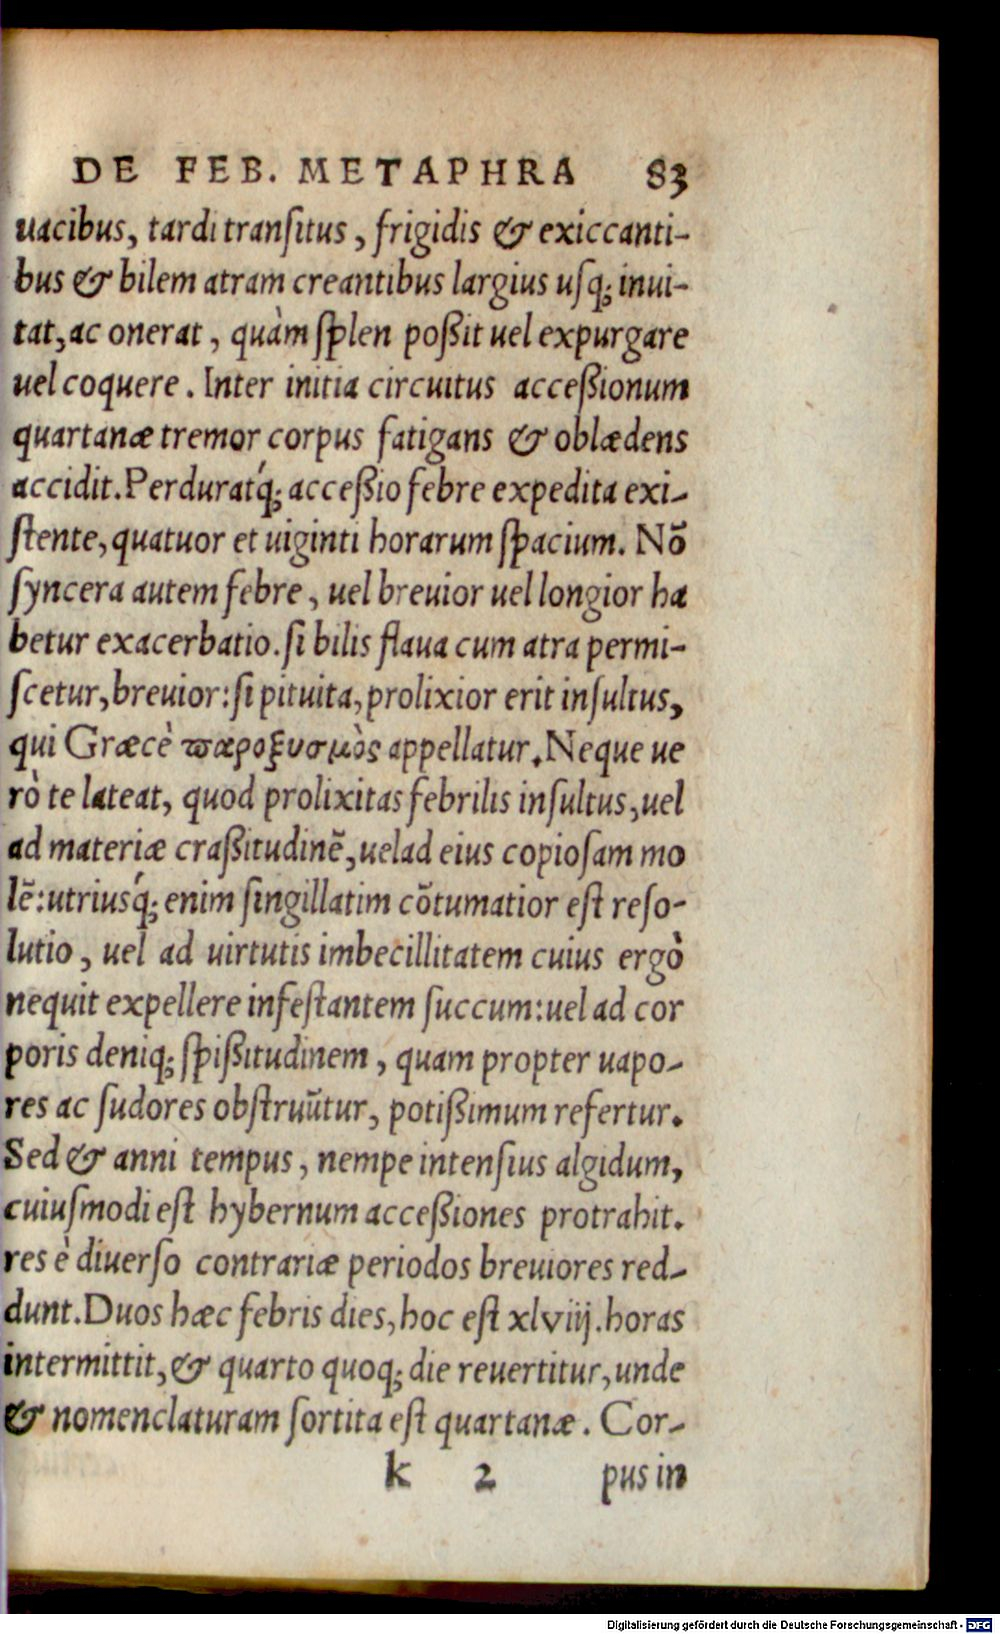 DE FEB. METAPHRA 83
uacibus, tardi tranſitus, frigidis & exiccanti-
bus & bilem atram creantibus largius uſq; inui-
tat, ac onerat, quàm ſplen poßit uel expurgare
uel coquere. Inter initia circuitus acceßionum
quartanæ tremor corpus fatigans & oblædens
accidit. Perduratq́; acceßio febre expedita exi-
ſtente, quatuor et uiginti horarum ſpacium. Nõ
ſyncera autem febre, uel breuior uel longior ha
betur exacerbatio. ſi bilis flaua cum atra permi-
ſcetur, breuior: ſi pituita, prolixior erit inſultus,
qui Græcè ϖαροξυσμὸς appellatur. Neque ue
rò te lateat, quod prolixitas febrilis inſultus, uel
ad materiæ craßitudinẽ, uel ad eius copioſam mo
lẽ: utriusq́; enim ſingillatim cõtumatior eſt reſo-
lutio, uel ad uirtutis imbecillitatem cuius ergò
nequit expellere infeſtantem ſuccum: uel ad cor
poris deniq; ſpißitudinem, quam propter uapo-
res ac ſudores obſtruũtur, potißimum refertur.
Sed & anni tempus, nempe intenſius algidum,
cuiuſmodi eſt hybernum acceßiones protrahit.
res è diuerſo contrariæ periodos breuiores red-
dunt. Duos hæc febris dies, hoc eſt xlviij. horas
intermittit, & quarto quoq; die reuertitur, unde
& nomenclaturam ſortita eſt quartanæ. Cor-
k 2 pus in
Digitalisierung gefördert durch die Deutsche Forschungsgemeinschaft - DFG